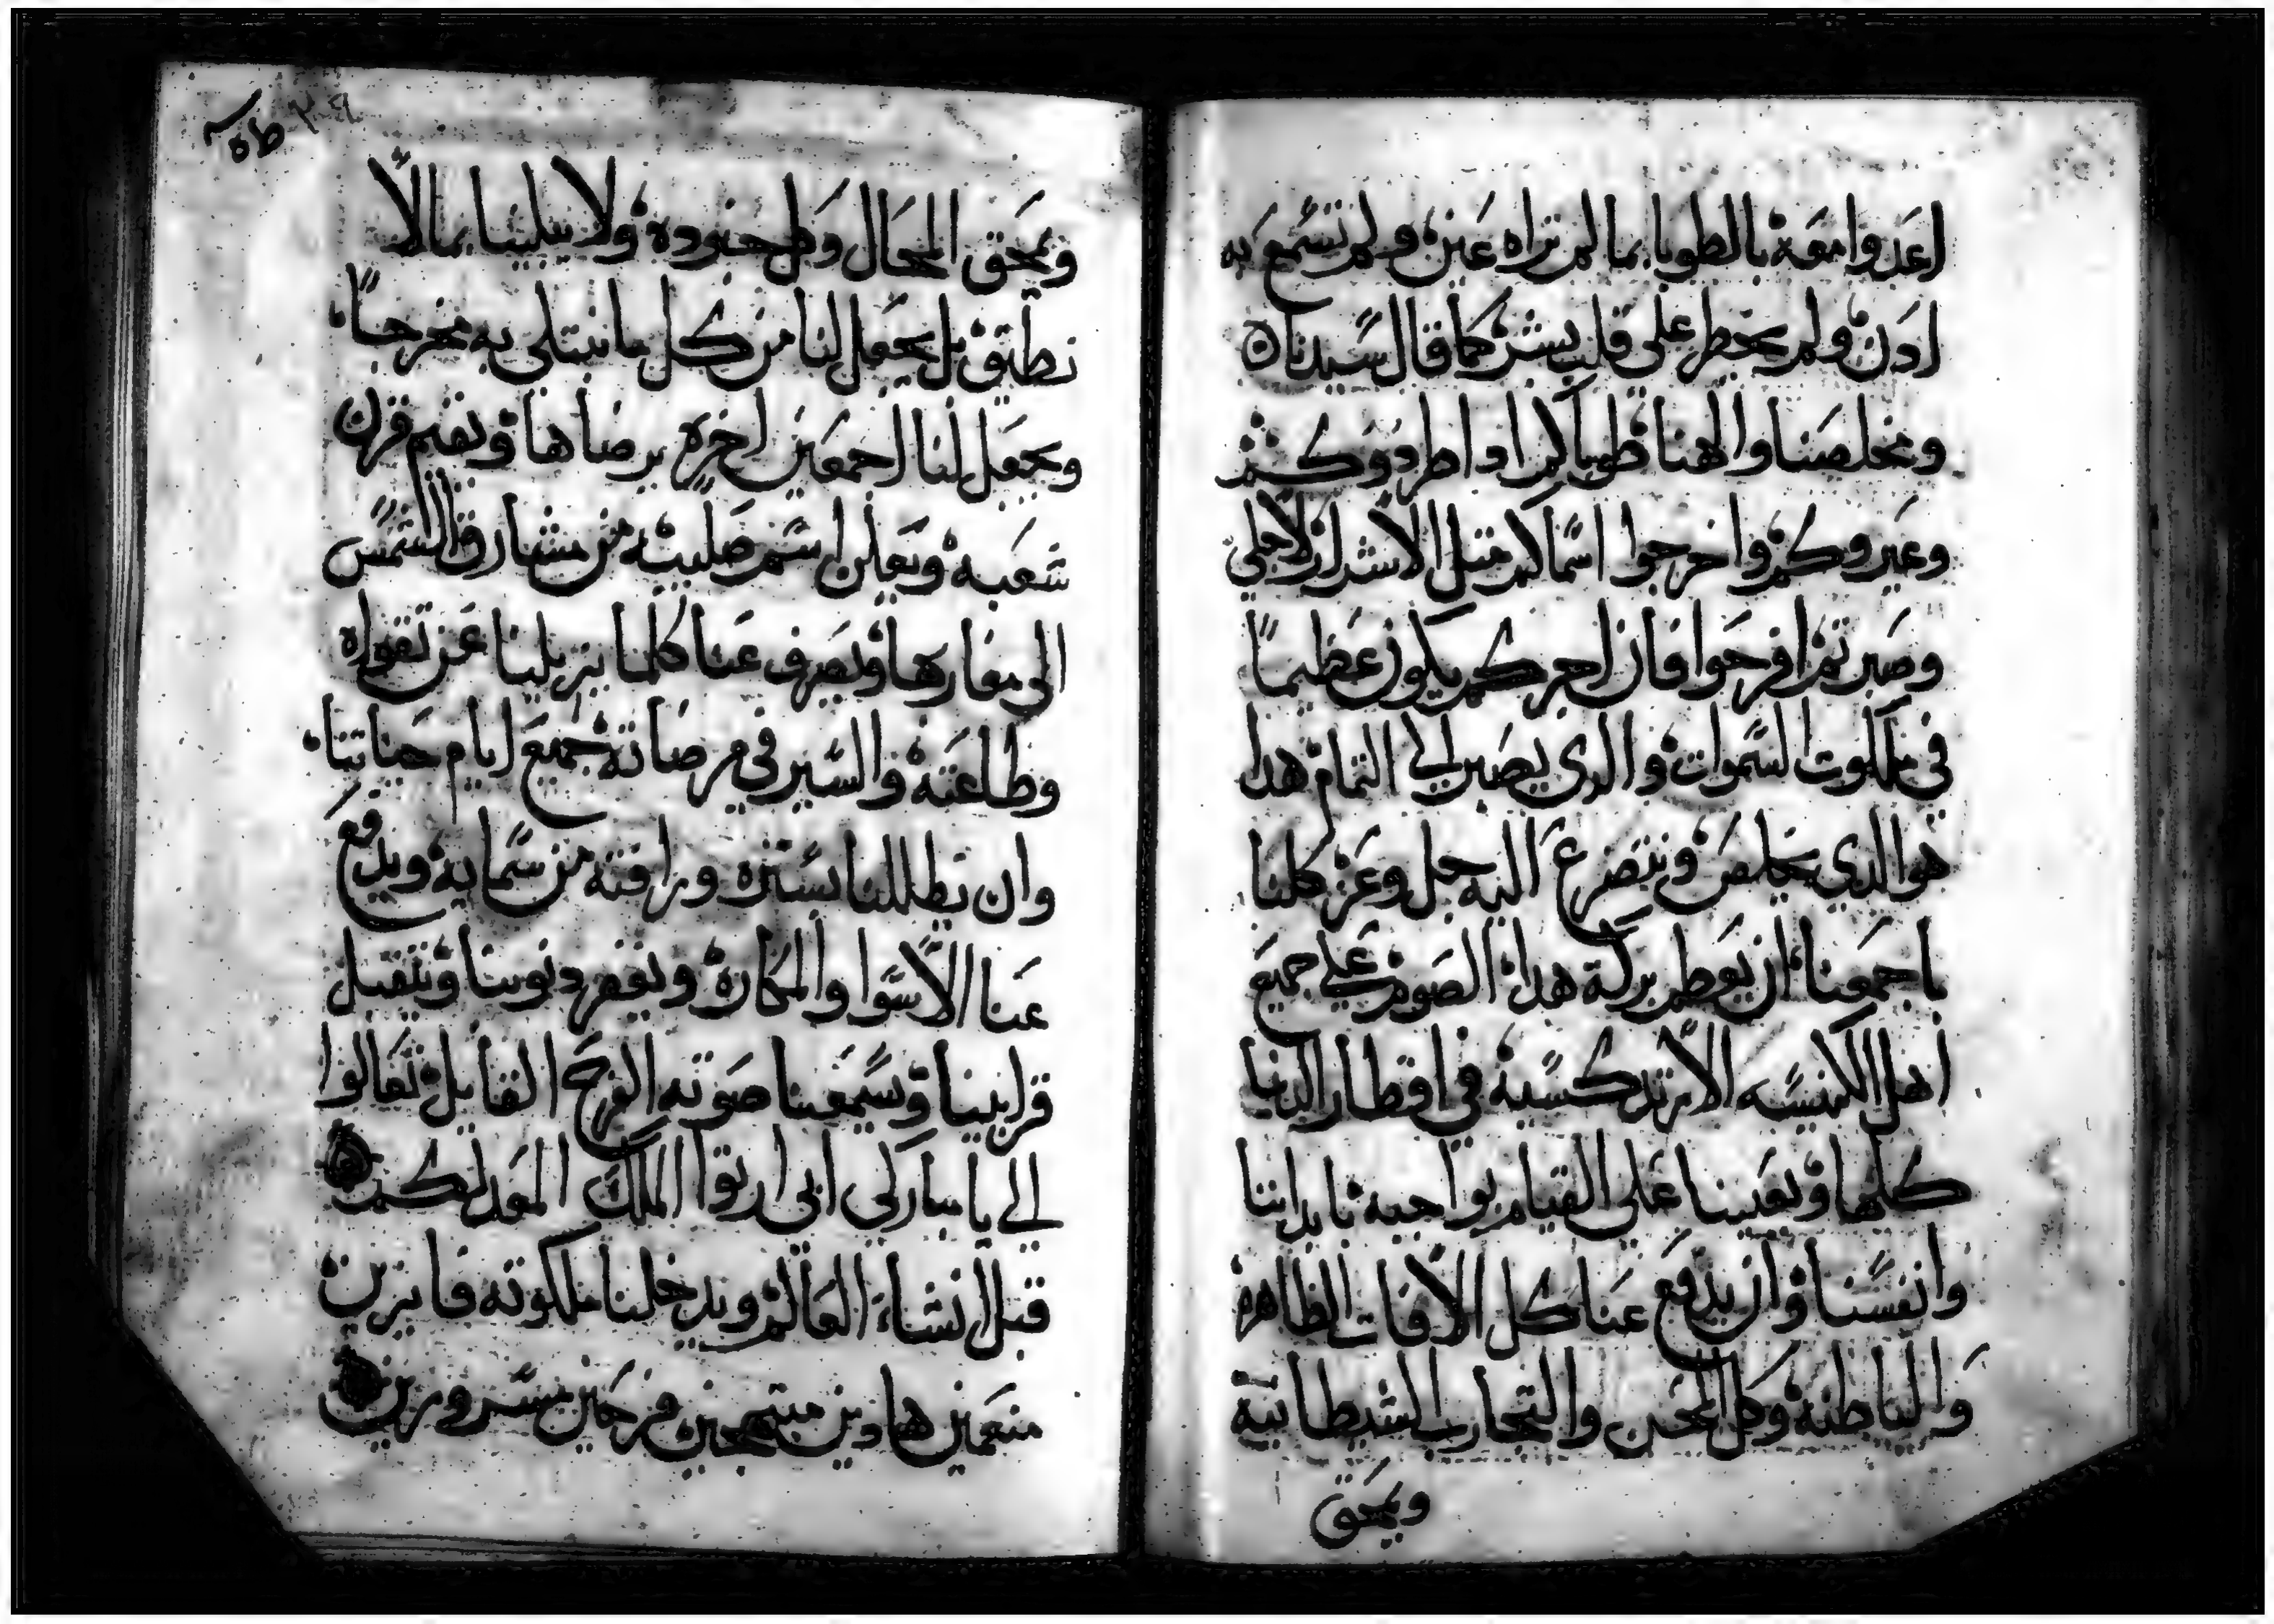 اعدوا معه بالطوبا بما لم تراه عين ولم تسمع به
ادن ولم يخطر على قلب بشر كما قال سيدنا
ومخلصنا والهنا طوباكم ادا طردوكم
وعيروكم واخرجوا اسماكم مثل الاشرار لاجلي
وصبرتم افرحوا فان اجركم يكون عظيما
في ملكوت السموات والدي يصبر الي التمام هدا
هو الدي يخلص ونتضرع اليه جل وعز كلنا
باجمعنا ان يعطم بركة هدا الصوم علي جميع
اهل الكنيسه الارتدكسية في اقطار الدنيا
كلها ويعيننا على القيام بواجبه بابداننا
وانفسنا وان يدفع عنا كل الافات الظاهره
والباطنه وكل المحن والتجارب الشيطانية
ويمحق
ويمحق المحال وكل جنوده ولا يبلينا بما لا
نطيق بل يجعل لنا من كل ما نبتلى به مخرجا
ويجعل لنا اجمعين اخره برضاها ويقيم قرن
شعبه ويعلن اسم صليبه من مشارق الشمس
الى مغاربها ويصرف عنا كلما يزيلنا عن تقواه
وطاعته والسير في مرضاته جميع ايام حياتنا
وان يظللنا بستره ورافته من سمايه ويدفع
عنا الاسوا والمكاره ويغفر دنوبنا ويتقبل
قرابيننا ويسمعنا صوته الفرح القايل تعالوا
الي يا مباركي ابى ارتوا الملك المعد لكم
قبل انشاء العالم ويدخلنا ملكوته فايزين
منعمين هاديين مبتهجين فرحين مسرورين